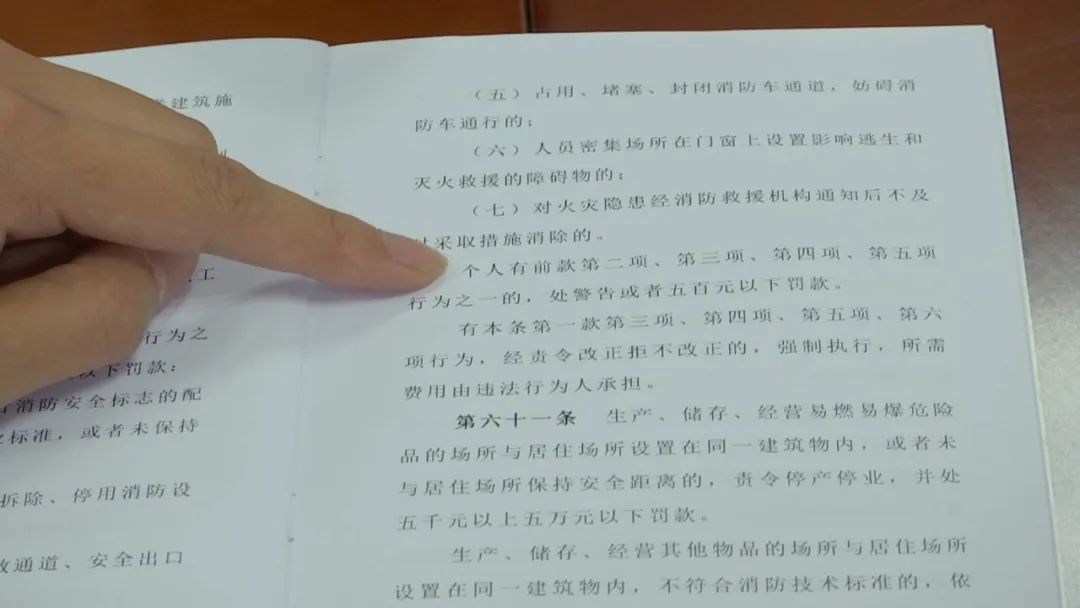 建筑施
工
行为之
以下罚款：
消防安全标志的配
标准，或者未保持
拆除、停用消防设
通道、安全出口
（五）占用、堵塞、封闭消防车通道，妨碍消
防车通行的；
（六）人员密集场所在门窗上设置影响逃生和
灭火救援的障碍物的；
（七）对火灾隐患经消防救援机构通知后不及
采取措施消除的。
个人有前款第二项、第三项、第四项、第五项
行为之一的，处警告或者五百元以下罚款。
有本条第一款第三项、第四项、第五项、第六
项行为，经责令改正拒不改正的，强制执行，所需
费用由违法行为人承担。
第六十一条　生产、储存、经营易燃易爆危险
品的场所与居住场所设置在同一建筑物内，或者未
与居住场所保持安全距离的，责令停产停业，并处
五千元以上五万元以下罚款。
生产、储存、经营其他物品的场所与居住场所
设置在同一建筑物内，不符合消防技术标准的，依